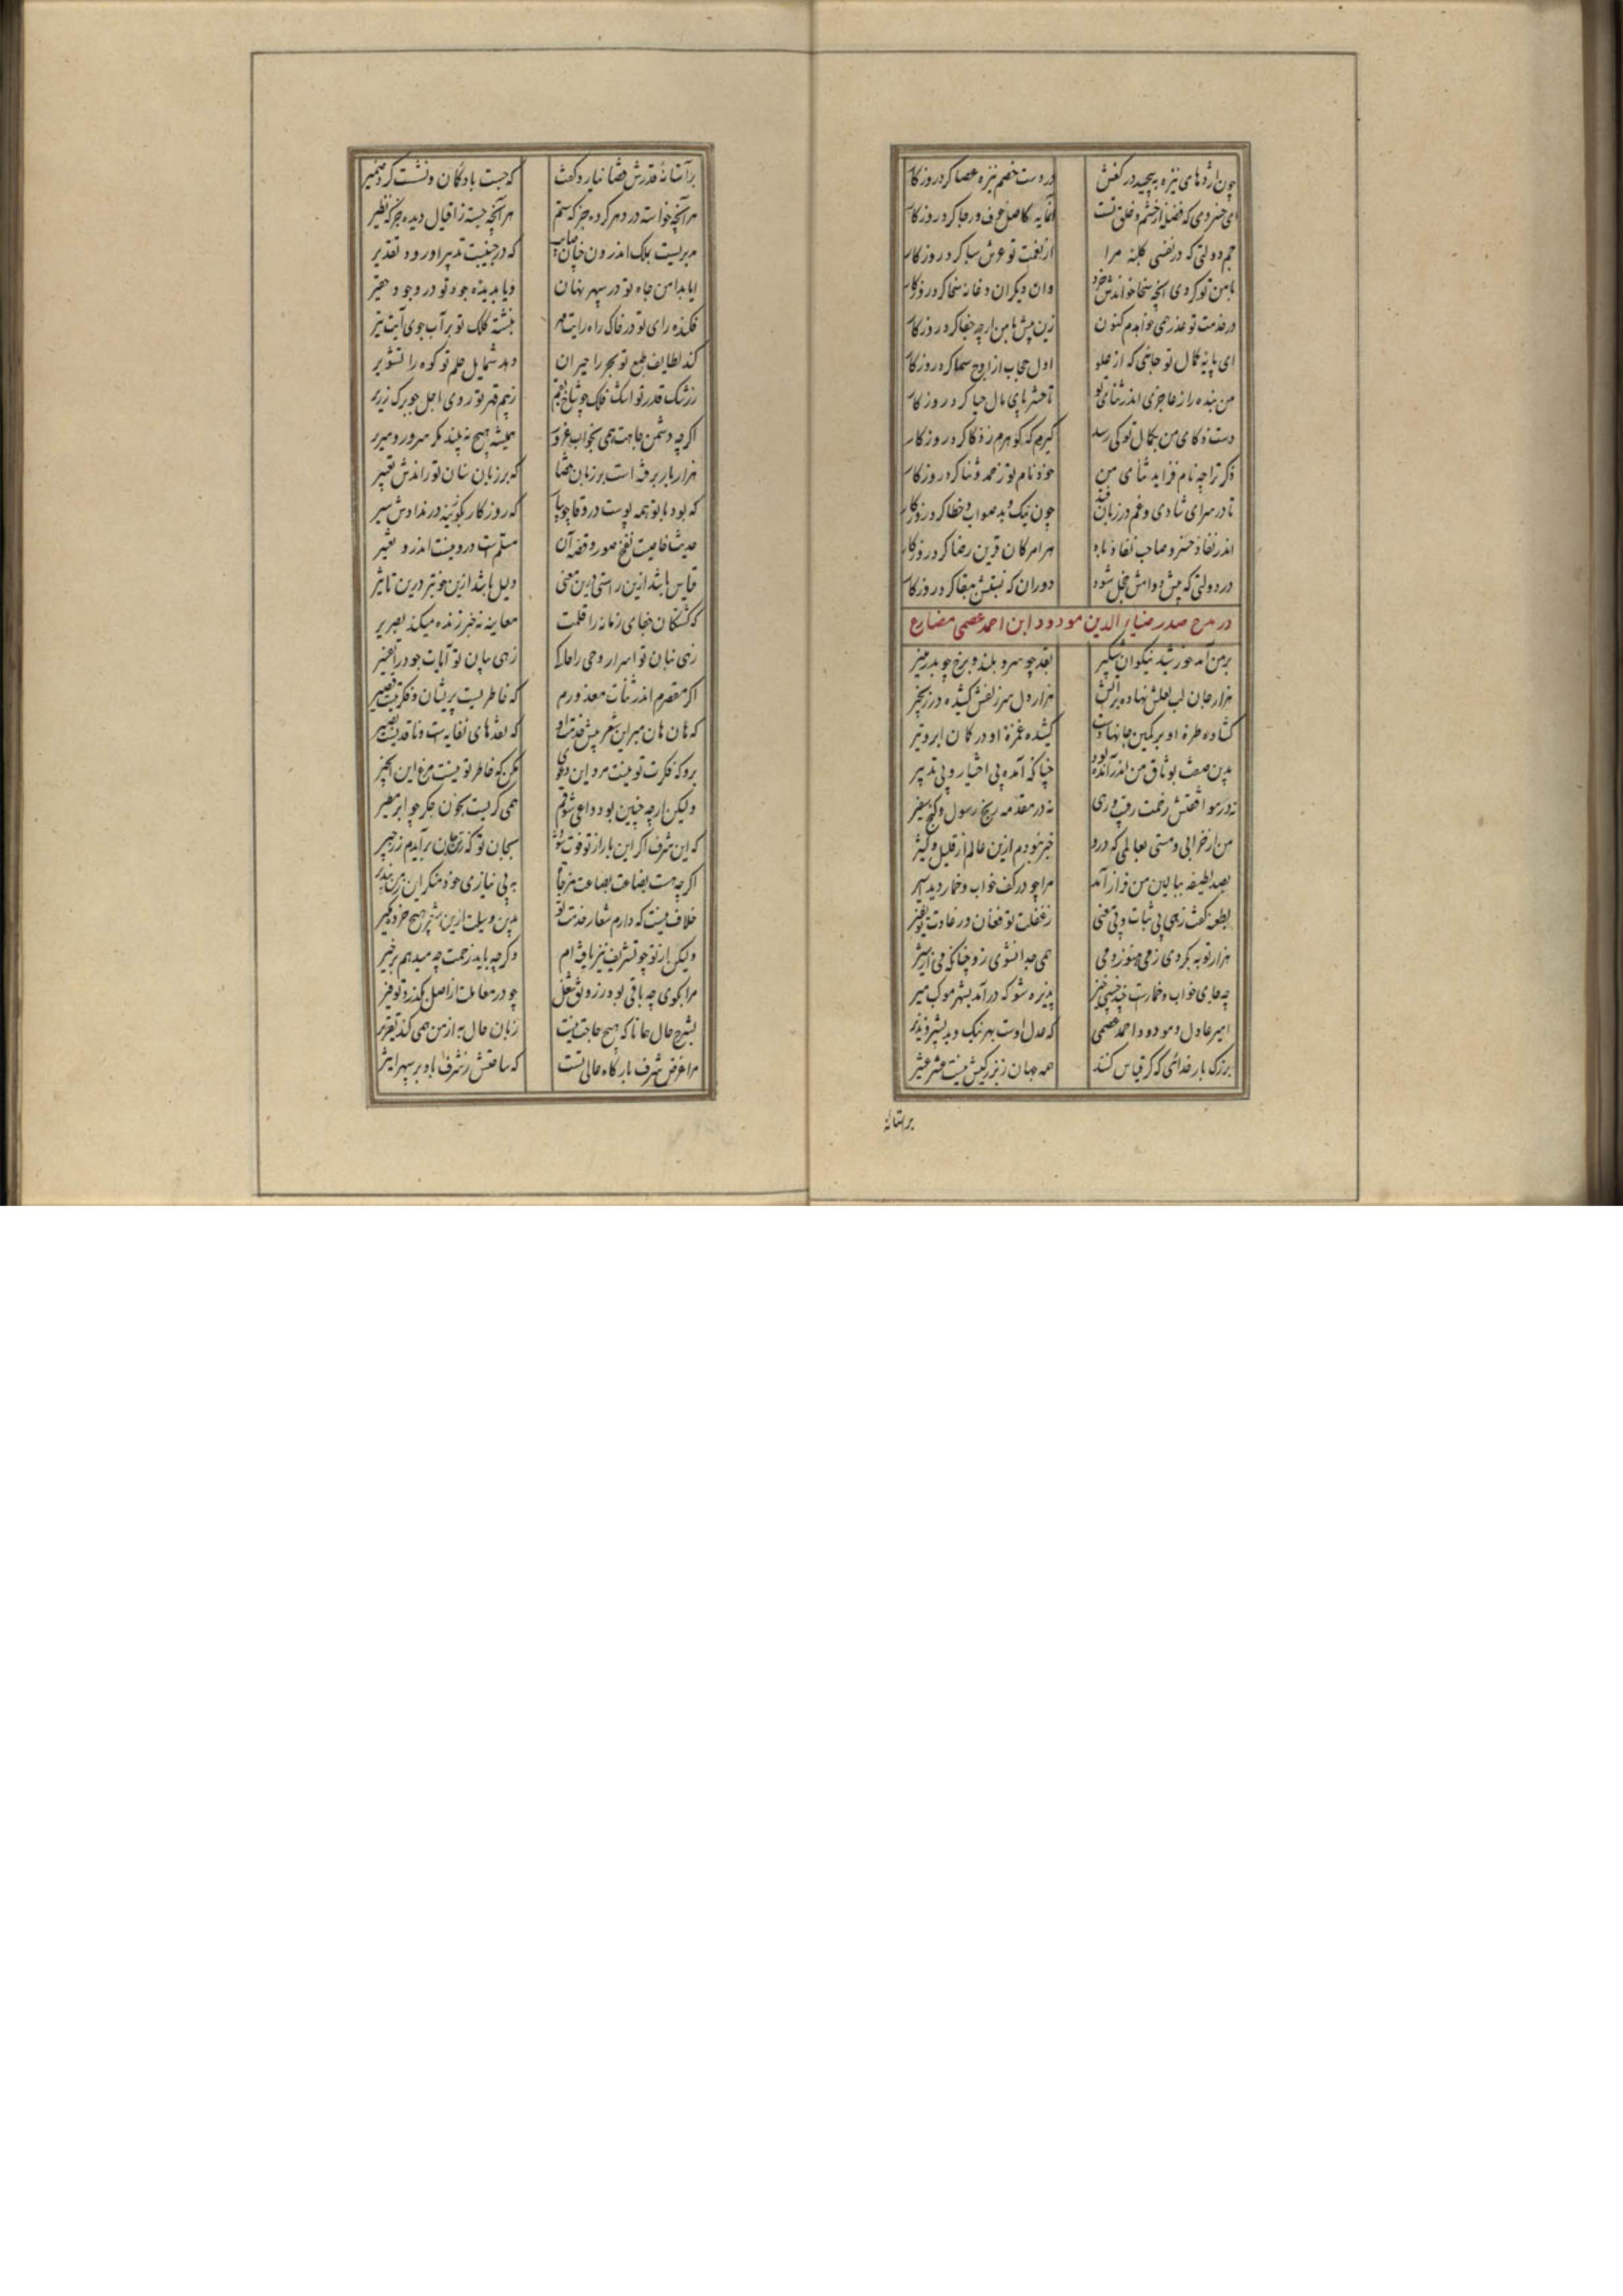 چون اژدهای نیزه بپیچید در کفش در دست خصم نیزه عصا کرد روزکار
ای خسروی که فضله از خشم و خلق تست آنمایه کاصل خوف و رجا کرد روزکار
جم دولتی که در نفسی کلبه مرا از نعمت تو عرش سبا کرد روزکار
با من تو کردی آنچه سخا خواندش خرد وان دیکران دغا نه سخا کرد روزکار
در خدمت تو عذر همی خواهدم کنون زین پیش با من ار چه جفا کرد روزکار
ای پایه کمال تو جائی که از علو اول حجاب از اوج سما کرد روزکار
من بنده را ز عاجزی اندر ثنای تو تا حشر پای مال حیا کرد روزکار
دست ذکای من بکمال تو کی رسد کیرم که کوهرم ز ذکا کرد روزکار
ذکر ترا چه نام فزاید ثنای من خود نام تو ز حمد و ثنا کرد روزکار
تا در سرای شادی و غم در زبان فتد چون نیک و بد صواب و خطا کرد روزکار
اندر نفاذ خسرو صاحب نفاذ باد هر امر کان قرین رضا کرد روزکار
در دولتی که پیش دوامش خجل شود دوران که نسبتش ببقا کرد روزکار
در مدح صدر ضیاء الدین مودود ابن احمد عصمی مضارع
بر من آمد خورشید نیکوان شبکیر بقد چو سرو بلند و برخ چو بدر منیر
هزار جان لب لعلش نهاده بر آتش هزار دل سر زلفش کشیده در زنجیر
کشاده طره او بر کمین جانها دست کشیده غمزه او در کمان ابرو تیر
بدین صفت بوثاق من اندر آمده بود چنانکه آمده بی اختیار و بی تدبیر
نه در موافقتش زحمت رقیب و رهی نه در مقدمه رنج رسول و کنج سفیر
من از خرابی و مستی بعالمی که درو خبر نبودم ازین عالم از قلیل و کثیر
بصد لطیفه ببالین من فراز آمد مرا چو در کف خواب و خمار دید اسیر
بطعنه کفت زهی بی ثبات و بی معنی ز غفلت تو فغان و ز عادت تو نفیر
هزار توبه بکردی ز می هنوز دمی همی جدا نشوی زو چنانکه می از شیر
چه جای خواب و خمارست خیز پذیره شو که درآمد بشهر موکب میر
امیر عادل و مودود احمد عصمی که عدل اوست بهر نیک و بد بشیر و نذیر
بزرک بار خدائی که کر قیاس کنند همه جهان ز بزرکیش نیست عشر عشیر
بر آستانه
بر آستانه قدرش قضا نیارد کفت که جست باد کمان و نشست کرد ضمیر
هر آنچه خواسته در دهر کرده جز که ستم هر آنچه جسته ز اقبال دیده جز که نظیر
مدبریست بملک اندرون چنان صایب که در جنیبت تدبیر او رود تقدیر
ایا بدامن جاه تو در سپهر نهان و یا بدیده جود تو در وجود حقیر
فکنده رای تو در خاک راه رایت مهر نبشته کلک تو بر آب جوی آیت تیر
کند لطایف طبع تو بحر را حیران دهد شمایل حلم تو کوه را تشویر
ز رشک قدر تو اشک فلک چو شاخ بقم ز بیم قهر تو روی اجل چو برک زریر
اکر چه دشمن جاهت همی بخواب غرور همیشه هیچ نه بیند مکر سرور و سریر
هزار بار برفته است بر زبان قضا که بر زبان سنان تو راندش تعبیر
که بود با تو همه پوست در وفا چو پیاز که روزکار بکوئیزه در ندادش سیر
حدیث خاصیت نفخ صور و قصه آن مسلمست درو نیست اندرو تغییر
قیاس باشد ازین راستی درین معنی دلیل باشد ازین خوبتر درین تاثیر
که کشتکان جفای زمانه را قلمت معاینه نه خبر زنده میکند بصریر
زهی بیان تو اسرار وحی را حاکی زهی بنان تو آیات جود را تفسیر
اکر مقصرم اندر ثنات معذورم که خاطریست پریشان و فکرتیست قصیر
که هان و هان مبر این شعر پیش خدمت او که نقدهای نفایه است و ناقدیست بصیر
برو که فکرت تو نیست مرد این دعوی مکن که خاطر تو نیست مرغ این انجیر
ولیکن ار چه چنین بود داعی شوقم همی کریست بخون جکر چو ابر مطیر
که این شرف اکر این بار از تو فوت شود بجان تو که ز جان برآیدم ز زحیر
اکر چه هست بضاعت بضاعت مزجاة به بی نیازی خود منکر این ز من بپذیر
خلاف نیست که دارم شعار خدمت تو بدین وسیلت ازین شعر هیچ خرده مکیر
ولیکن از تو چو تشریف نیز یافته‌ام و کر چه باید زحمت چه میدهم بر خیر
مرا بکوی چه باقی بود ز رونق شغل چو در معاملت از اصل بکذرد توفیر
بشرح حال همانا که هیچ حاجت نیست زبان حال به از من همی کند تقریر
مرا غرض شرف بارکاه عالی تست که ساختش ز شرف باد بر سپهر اثیر